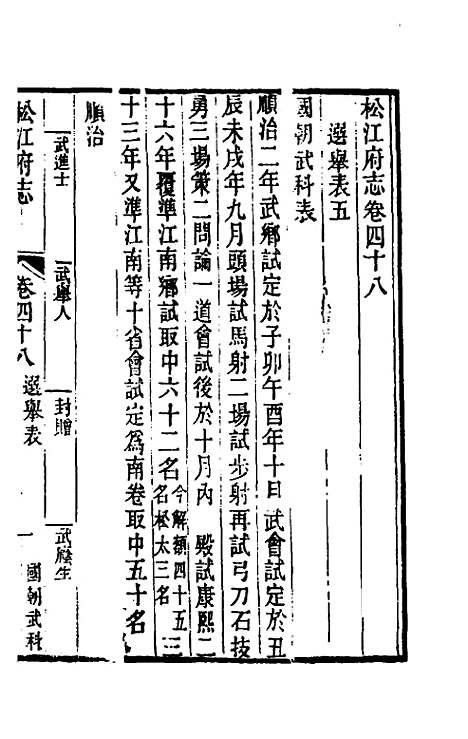 松江府志卷四十八
選舉表五
國朝武科表
順治二年武鄉試定於子卯午酉年十月武會試定於丑
辰未戌年九月頭場試馬射二場試步射再試弓刀石技
勇三場策二問論一道會試後於十月內　殿試康熙二
十六年覆準江南鄉試取中六十二名今解額四十五名松太三名三
十三年又準江南等十省會試定爲南卷取中五十名
順治
武進士　武舉人　封贈　武廕生
松江府志　卷四十八　選舉表　一　國朝武科